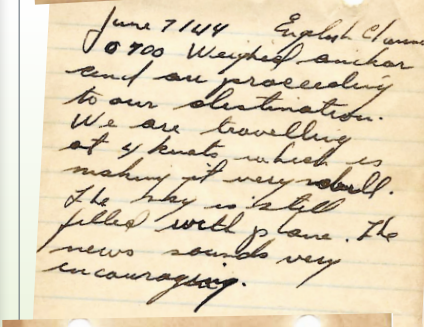 June 7/44 English Channe
0700 Weighed anchor
and are proceeding
to our destination.
We are travelling
at 4 knots which is
making it very dull.
The sky is still
filled with plane. The
news sounds very
encouraging.